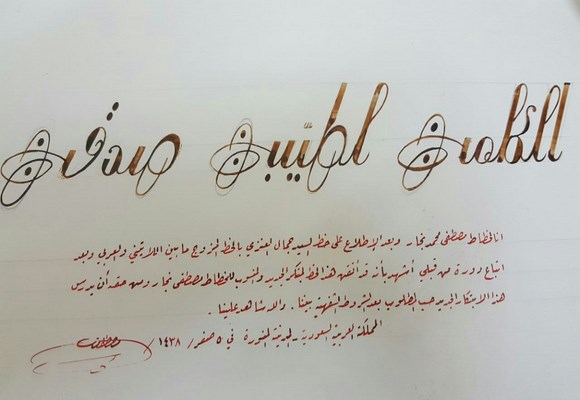 الكلمة الطيّبة صدقة
انا الخطاط مصطفى محمد نجار وبعد الإطلاع على خط السيد جمال العنزي بالخط المزوج ما بين اللاتيني والعربي وبعد
اتباع دورة من قبلي أشهد بأنه قد أتقن هذا الخط المبتكر الجديد والمنسوب للخطاط مصطفى نجار ومن حقه أن يدرس
هذا الابتكار الجديد حسب المطلوب بعد الشروط الشفهية بيننا . والله شاهد علينا .
المملكة العربية السعودية - المدينة المنورة في ٥ صفر / ١٤٣٨